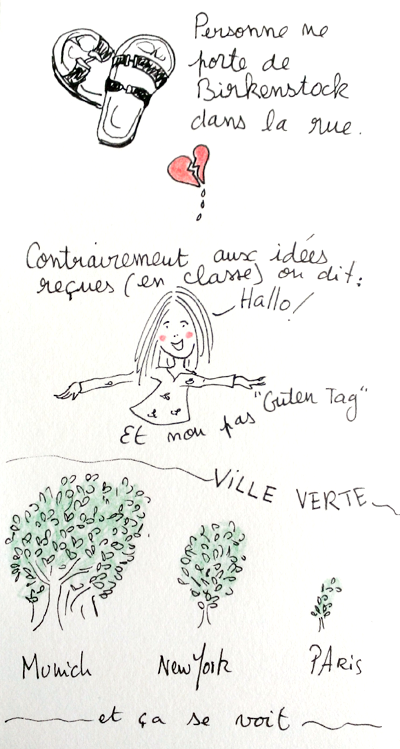 Personne ne
porte de
Birkenstock
dans la rue.
Contrairement aux idées
reçues (en classe) on dit:
Hallo!
Et non pas "Guten Tag"
VILLE VERTE
Munich
New York
PAris
et ça se voit